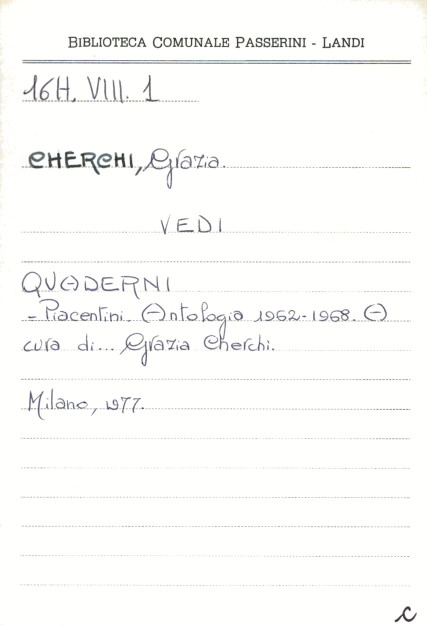 BIBLIOTECA COMUNALE PASSERINI - LANDI
16H. VIII. 1
CHERCHI, Grazia.
VEDI
QUADERNI
- Piacentini. Antologia 1962-1968. A
cura di... Grazia Cherchi.
Milano, 1977.
C